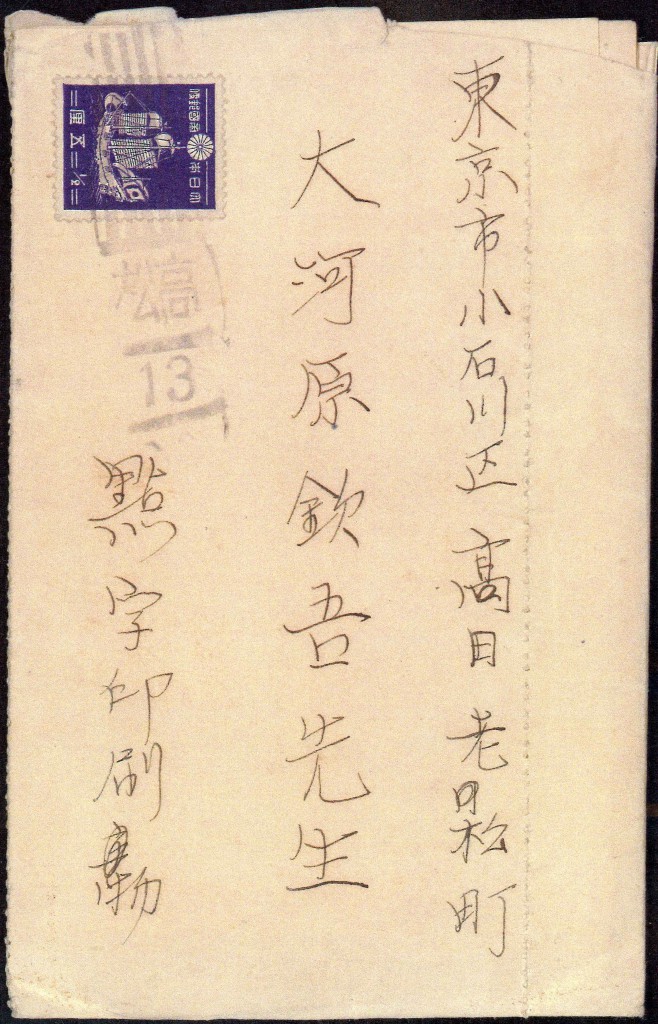 東京市小石川区高日老松町
大河原欽吾先生
點字印刷
大日本
帝國郵便
五厘
½
高松
13